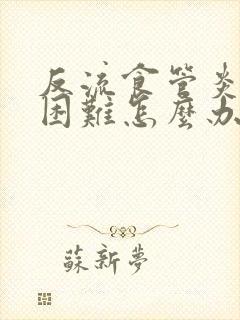 反流食管炎
困難怎麼办
蘇新夢